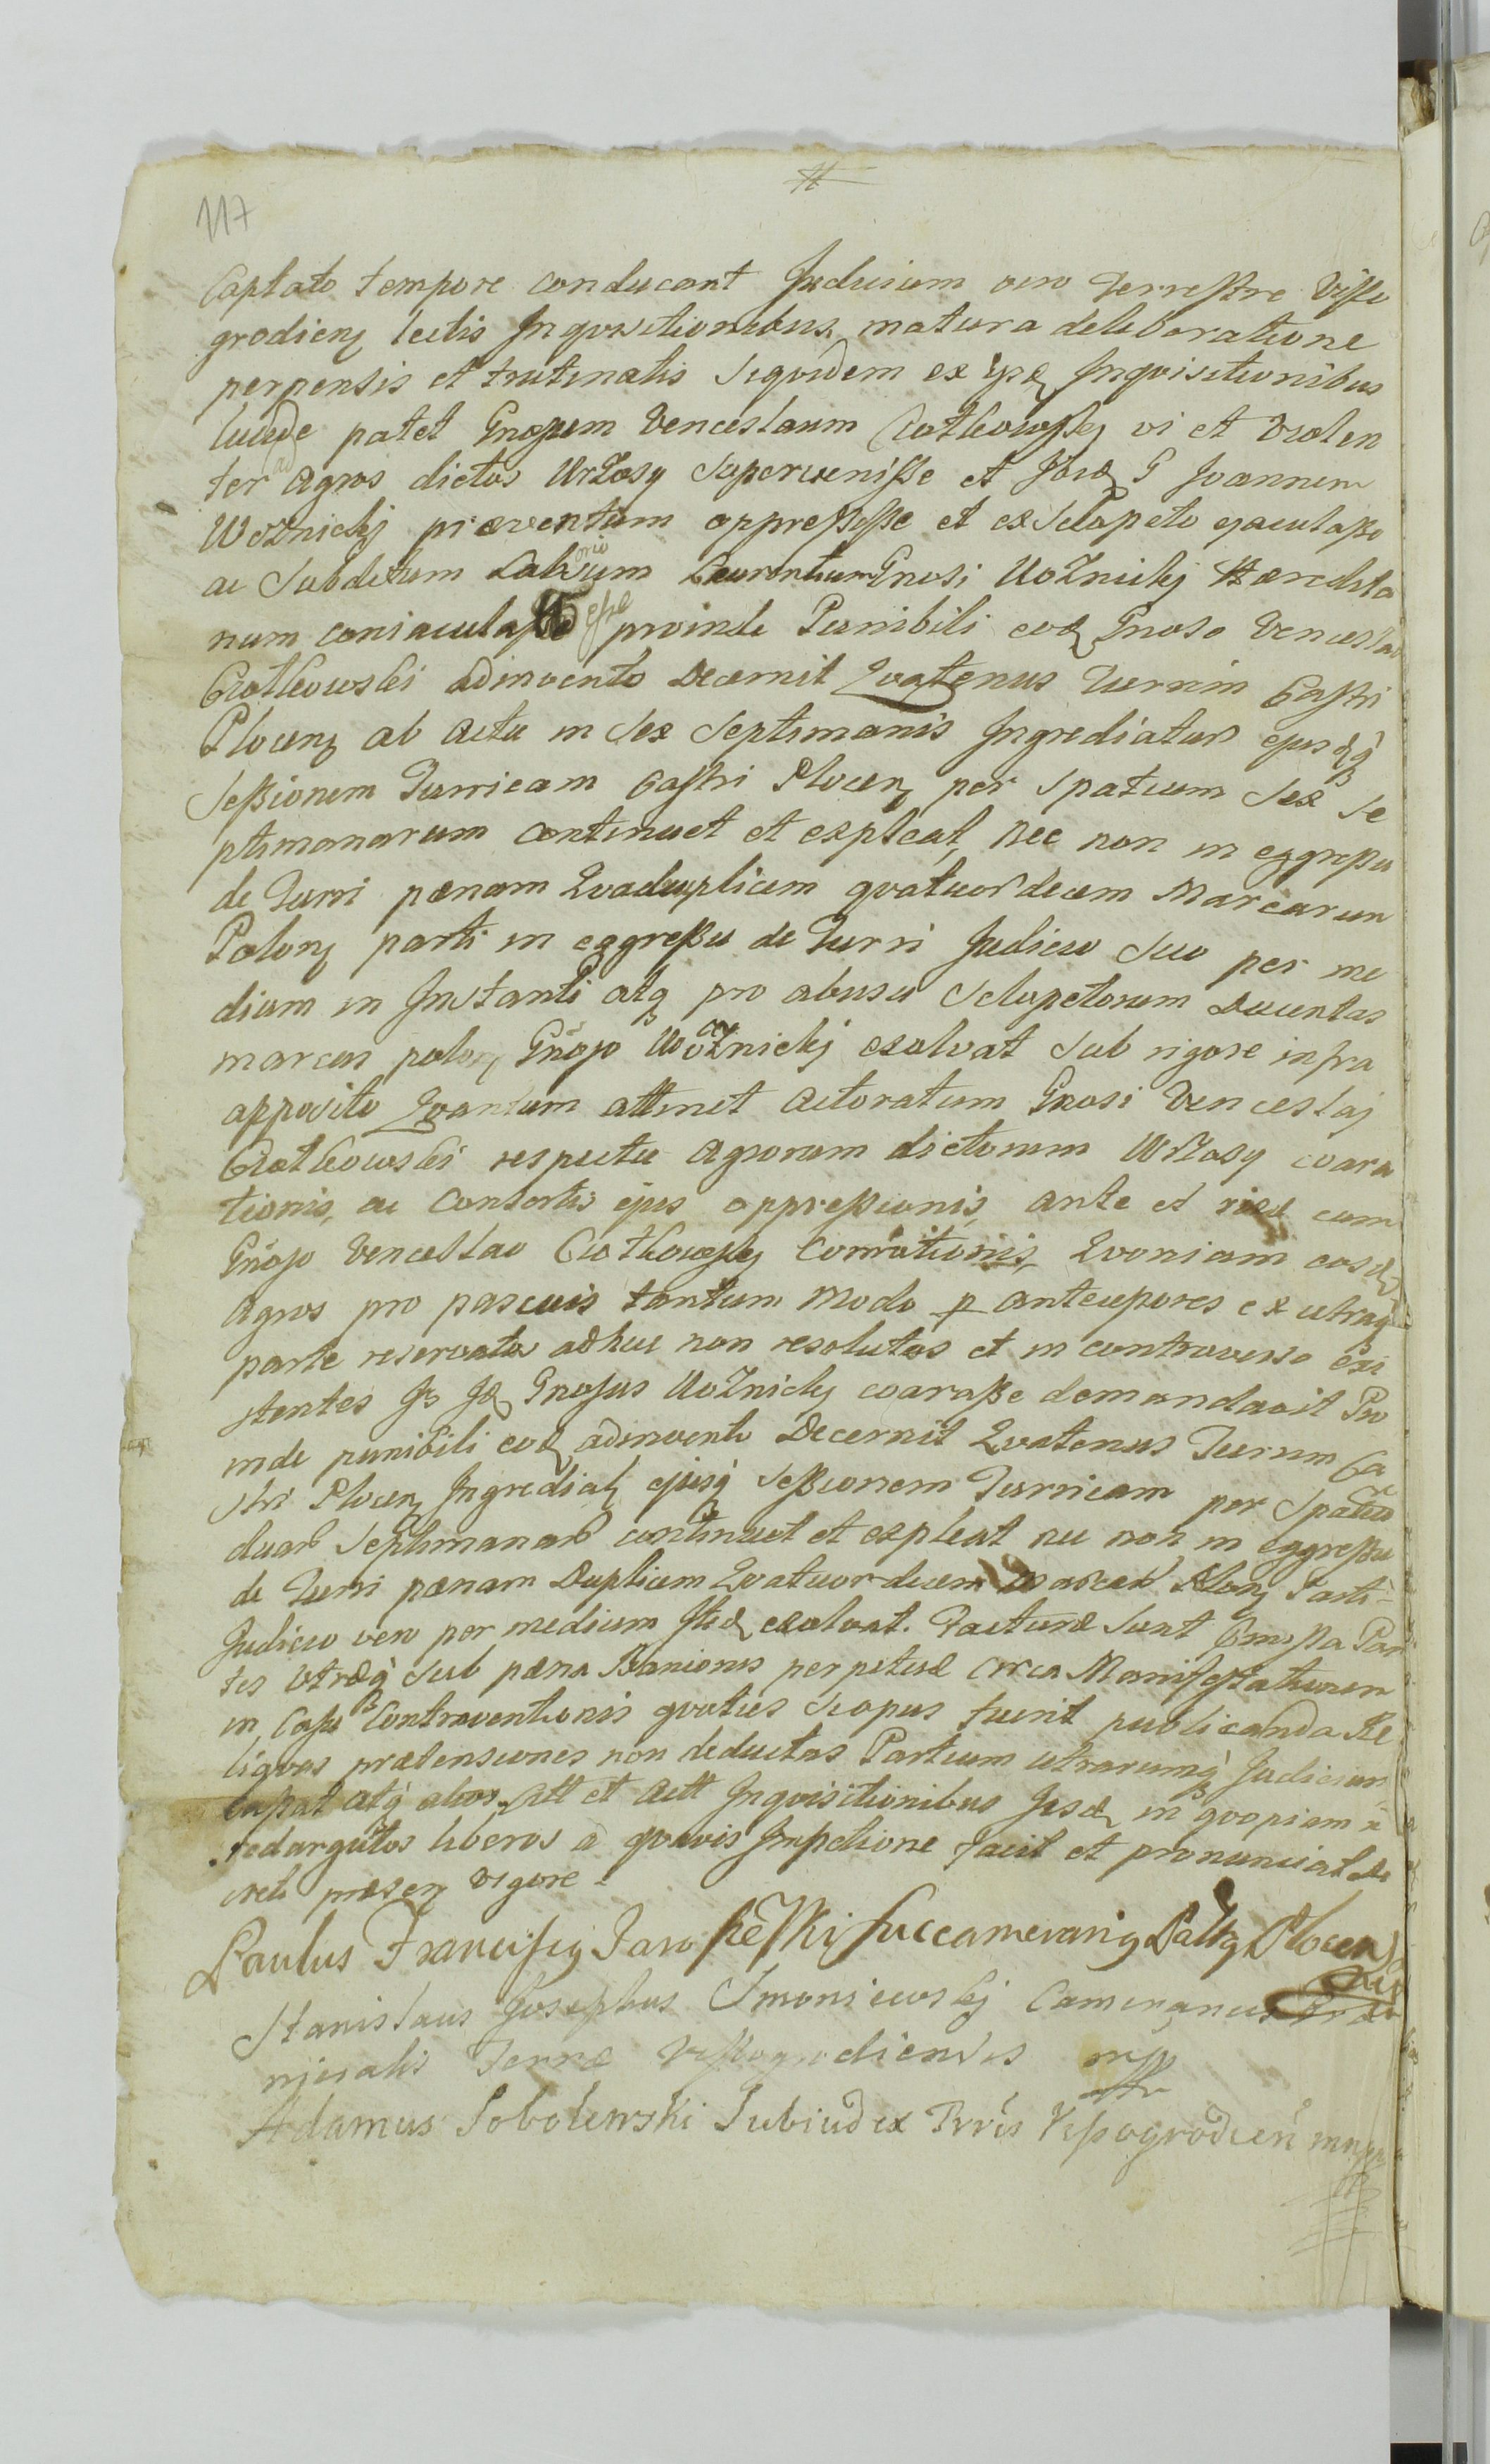 117
Captato tempore conducant Judicium vero Terrestre Visso
grodien lectis Inqvisitionibus matura deliberatione
perpensis et trutinatis Siqvidem ex ipsis Inqvisitionibus
lucide patet Gnosum Venceslaum Ciotkowskj vi et violen
ter ad Agros dictos Wrzosy supervenisse et ibid G Joannem
Woznickj præventum oppressisse et ex Sclopeto ejaculasse
ac Subditum Laboriosum Laurentium Gnosi Woznickj Hæredita
num coniaculasse esse proinde Punibili eod Gnoso Venceslao
Ciotkowski adinvento Decernit Qvatenus Turrim Castri
Plocen ab actu in sex Septimanis Ingrediatur ejusdq
Sessionem Turricam Castri Plocen per Spatium Sex Se
ptimanarum continuet et expleat, nec non in eggressu
de Turri pænam Qvadruplicem qvatuordecem Marcarum
Polon parti in eggressu de Turri Judicio suo per me
dium in Instanti atq pro abusu Sclopetorum Ducentas
marcas polon Gnoso Woznickj exolvat sub rigore infra
apposito Qvantum attinet Actoratum Gnosi Venceslaj
Ciotkowski respectu Agrorum dictorum Wrzosy coara
tionis, ac Consortis ejus oppressionis, ante et cum
Gnoso Venceslao Ciotkowskj Qvoniam eosd
Agros pro pascuis tantum modo p antecessores ex utraq
parte reservatos adhuc non resolutos et in controverso exi
stentes Is Id Gnosus Woznickj coarasse demandavit Pro
inde punibili eod adinvento Decernit Qvatenus Turrim Ca
stri Plocen Ingrediat ejusq Sessionem Turricam per Spatiu
duar Septimanar continuet et expleat nec non in eggressu
de Turri pænam Duplicem Qvatuordecem Marcar Polon Parti
Judicio vero per medium Itid exolvat. Facturæ sunt Omissa Par
tes Utræq sub pæna Banionis perpetuæ circa Manifestationem
in Casu Contraventionis qvoties opus fuerit publicanda Re
liqvas prætensiones non deductas Partium utrarumq Judicium
atq alios Att et Actt Inqvisitionibus in
redargutos liberos a qvavis Impetione facit et pronunciat De
creti præsen vigore
Paulus Franciscq Jaro Succamerariq Plocen
Stanislaus Josephus Smoniewskj Camerarius
Terræ Vissogrodiensis mp
Adamus Sobolewski Subiudex Trris Vissogrodien mpp